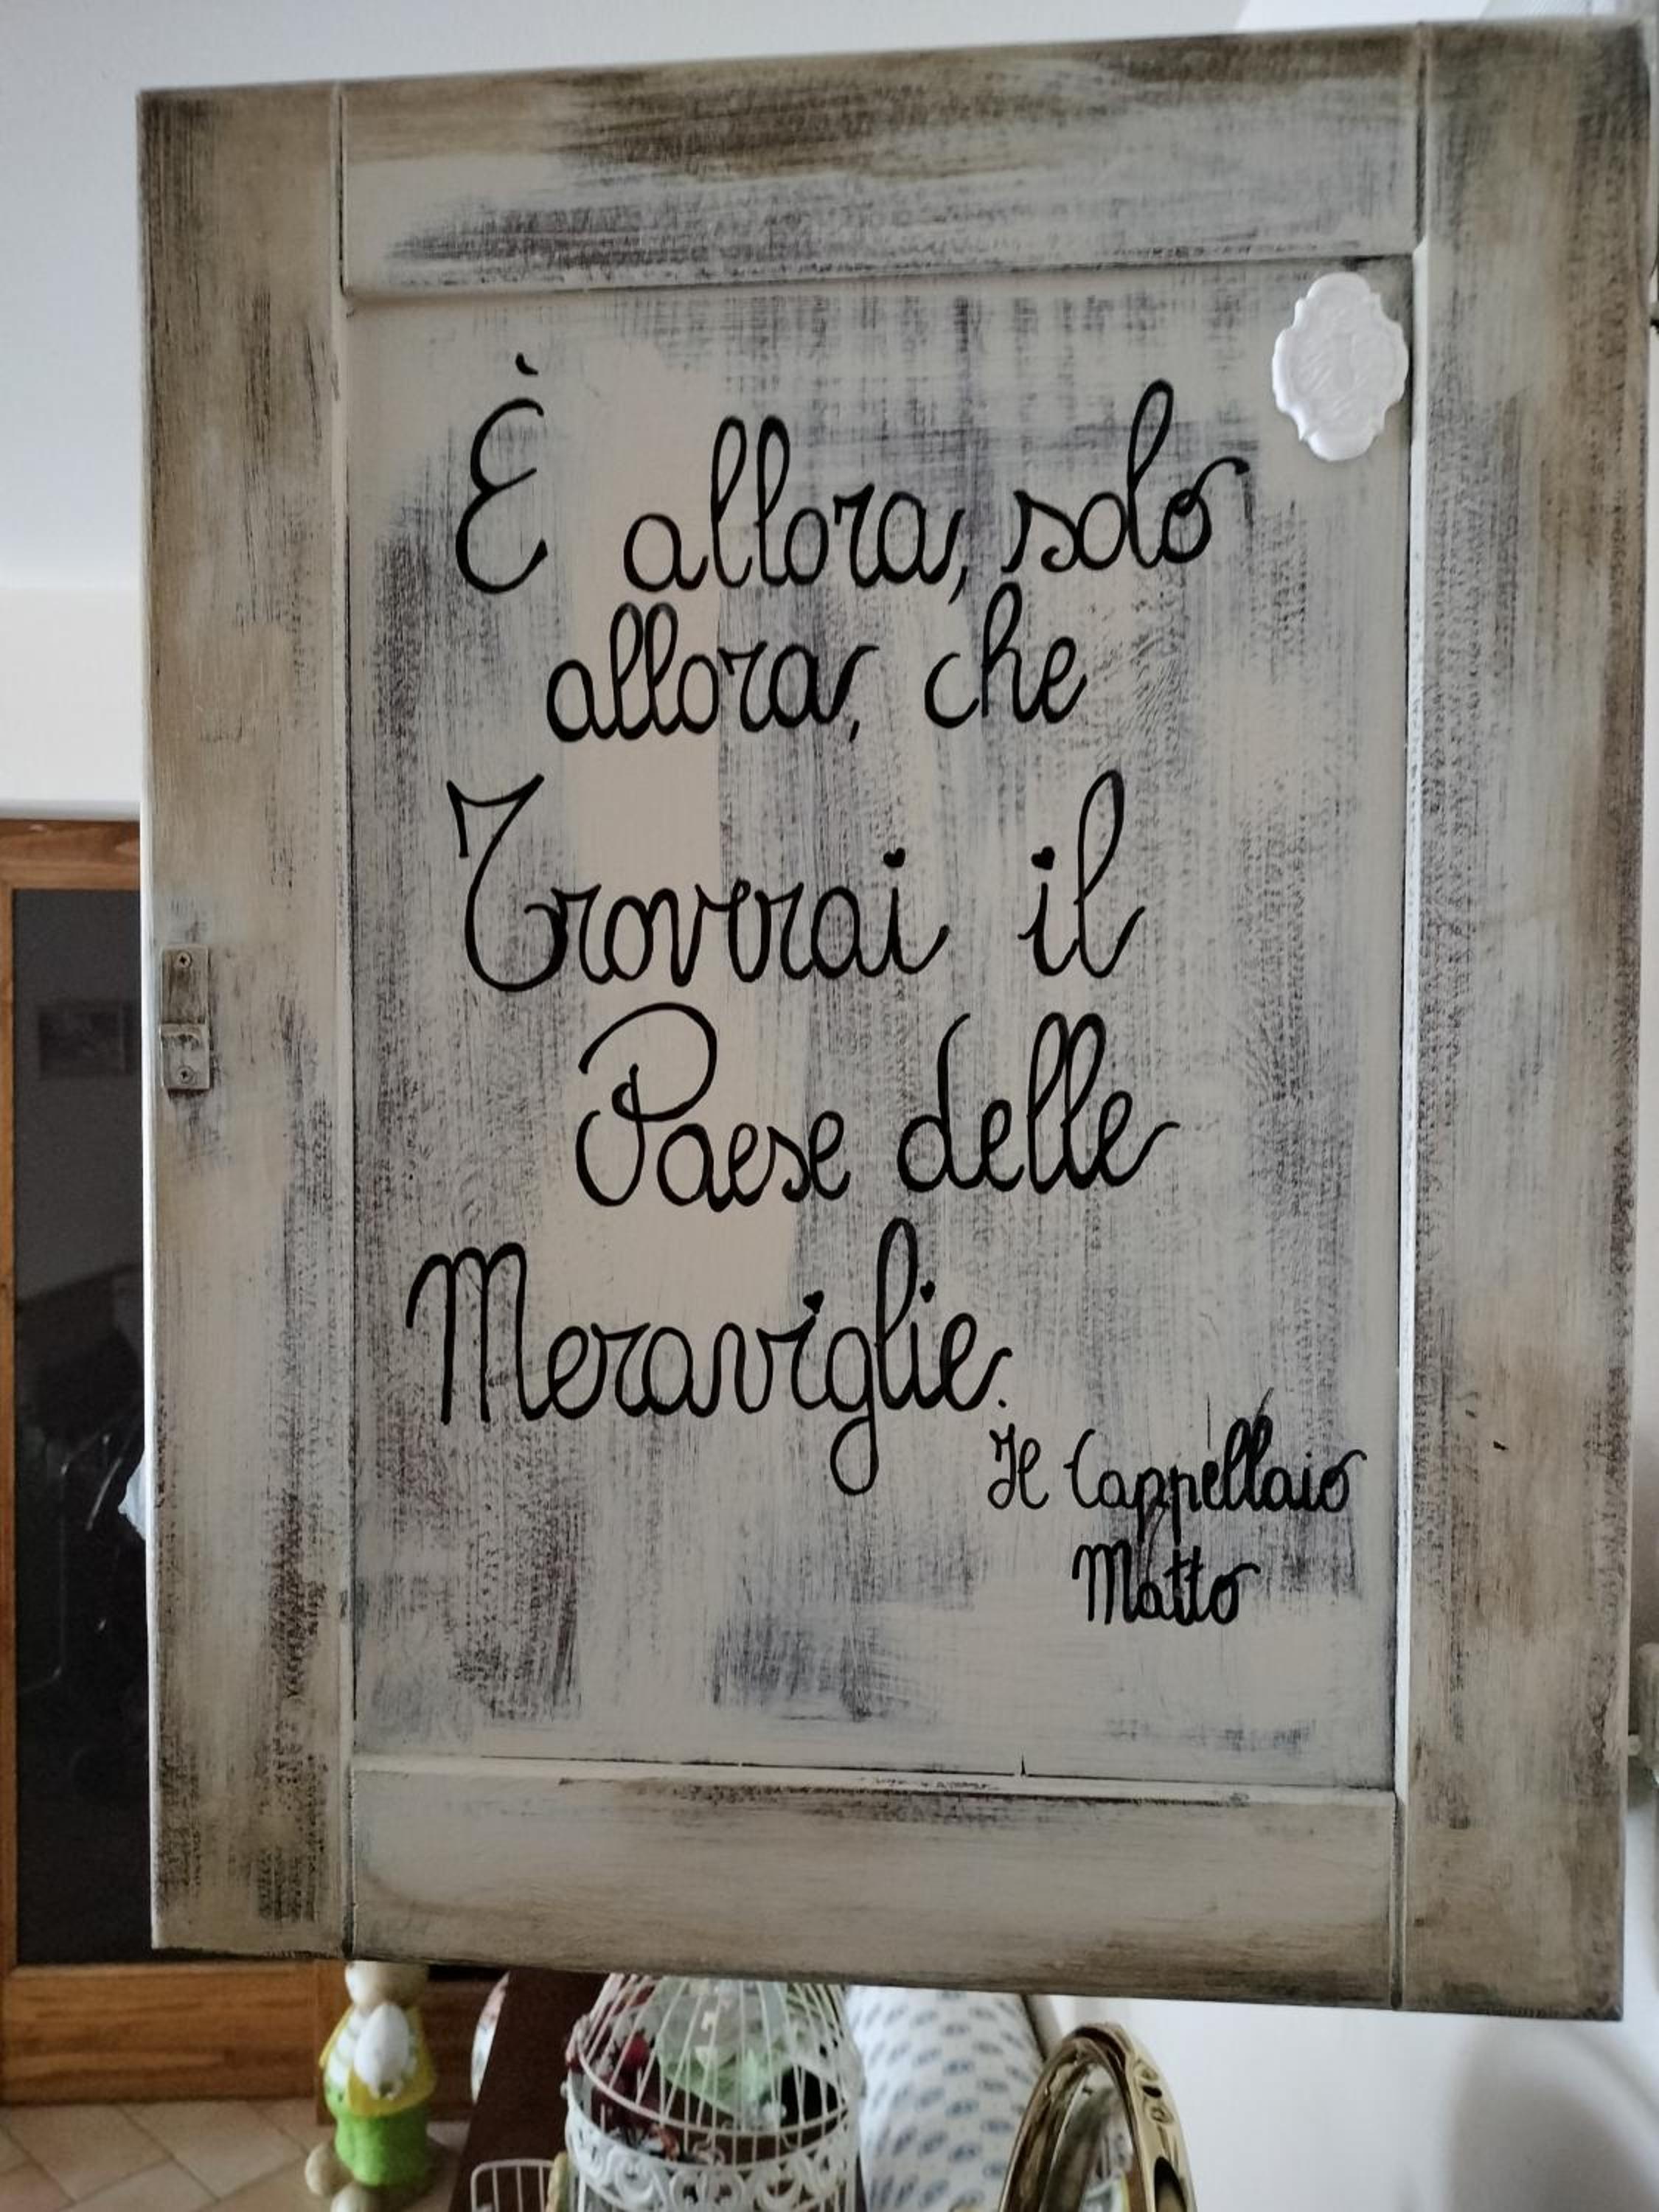 È allora, solo
allora, che
Troverai il
Paese delle
Meraviglie.
Il Cappellaio
Matto